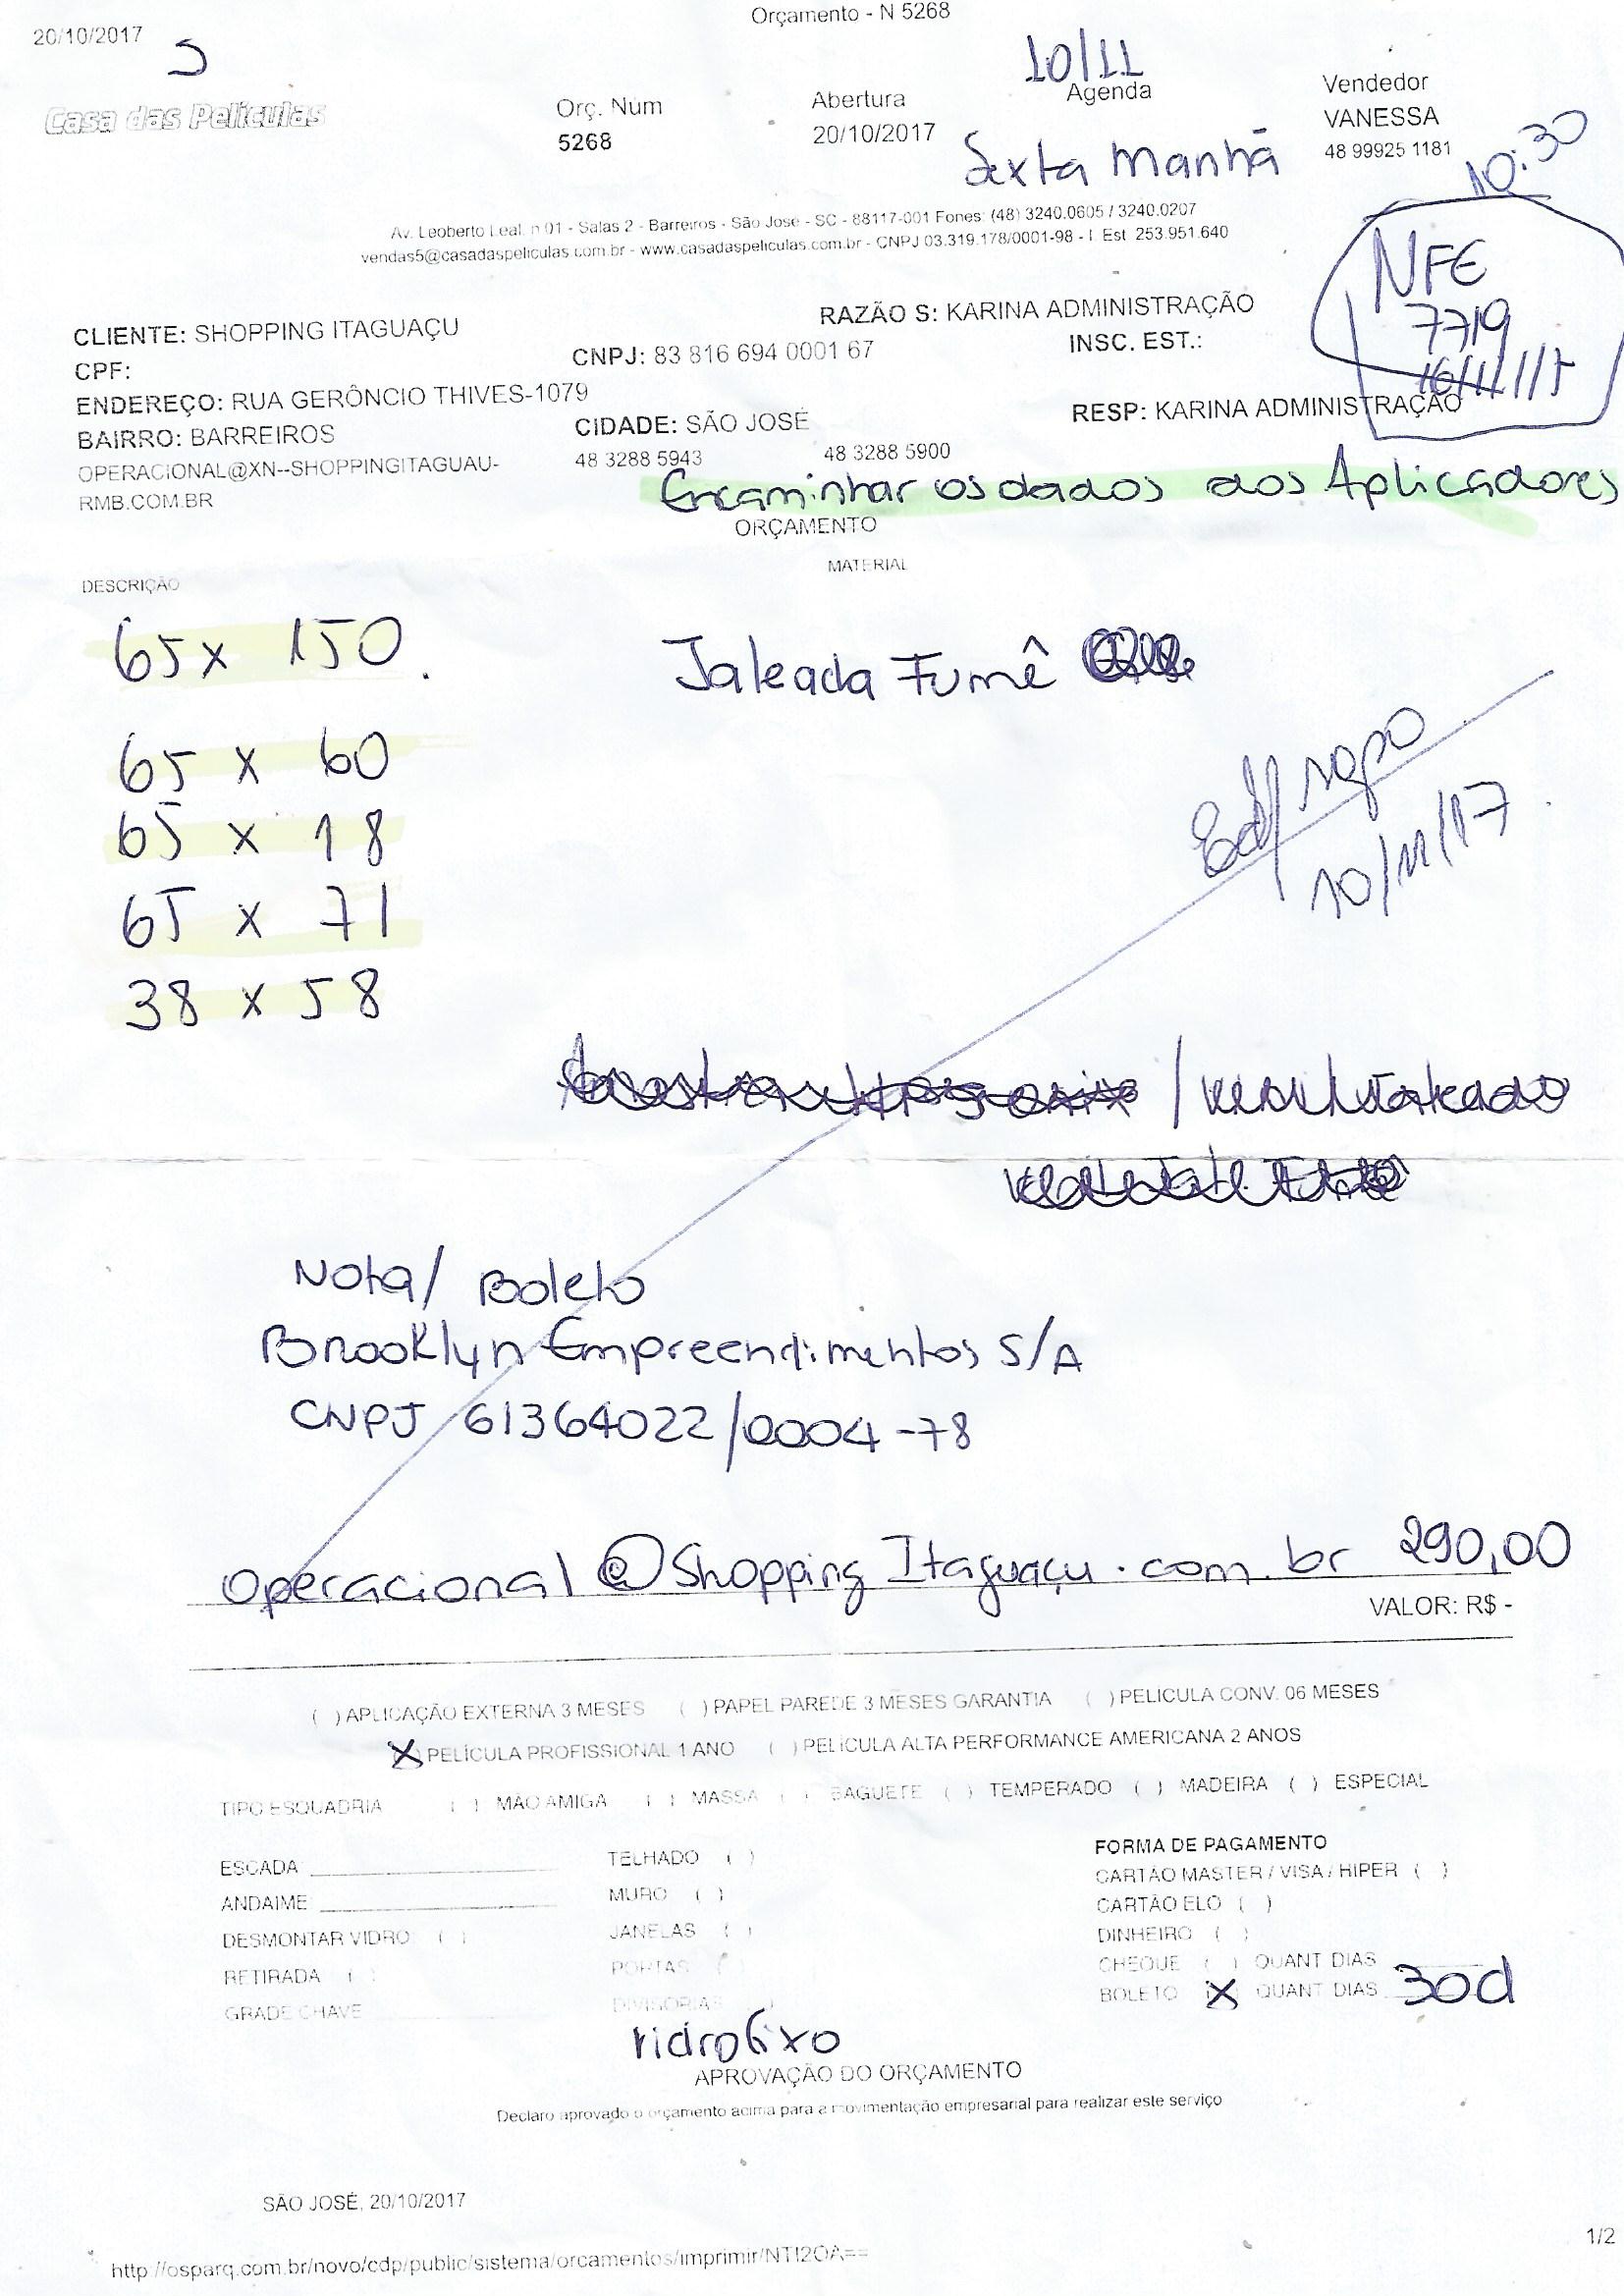 Orçamento - N 5268
20/10/2017
10/11
Casa das Películas
Orç. Num
5268
Abertura
20/10/2017
Agenda
Sexta Manhã
Vendedor
VANESSA
48 99925 1181
10:30
Av. Leoberto Leal, n 01 - Salas 2 - Barreiros - São José - SC - 88117-001 Fones: (48) 3240.0605 / 3240.0207
vendas5@casadaspeliculas.com.br - www.casadaspeliculas.com.br - CNPJ 03.319.178/0001-98 - I. Est 253.951.640
NFE
7719
16/11/17
CLIENTE: SHOPPING ITAGUAÇU
RAZÃO S: KARINA ADMINISTRAÇÃO
CPF:
CNPJ: 83 816 694 0001 67
INSC. EST.:
ENDEREÇO: RUA GERÔNCIO THIVES-1079
BAIRRO: BARREIROS
CIDADE: SÃO JOSÉ
RESP: KARINA ADMINISTRAÇÃO
OPERACIONAL@XN--SHOPPINGITAGUAU-
RMB.COM.BR
48 3288 5943
48 3288 5900
Encaminhar os dados dos Aplicadores
ORÇAMENTO
DESCRIÇÃO
MATERIAL
65 x 150.
Jateada Fumê
65 x 60
65 x 18
65 x 71
38 x 58
10/11/17
Nota/ Boleto
Brooklyn Empreendimentos S/A
CNPJ 61364022/0004-78
Operacional@ShoppingItaguaçu.com.br 290,00
VALOR: R$ -
( ) APLICAÇÃO EXTERNA 3 MESES ( ) PAPEL PAREDE 3 MESES GARANTIA ( ) PELICULA CONV. 06 MESES
(X) PELÍCULA PROFISSIONAL 1 ANO ( ) PELÍCULA ALTA PERFORMANCE AMERICANA 2 ANOS
TIPO ESQUADRIA ( ) MÃO AMIGA ( ) MASSA ( ) BAGUETE ( ) TEMPERADO ( ) MADEIRA ( ) ESPECIAL
ESCADA
ANDAIME
DESMONTAR VIDRO ( )
RETIRADA ( )
GRADE CHAVE
TELHADO ( )
MURO ( )
JANELAS ( )
PORTAS ( )
DIVISORIAS ( )
vidro fixo
FORMA DE PAGAMENTO
CARTÃO MASTER / VISA / HIPER ( )
CARTÃO ELO ( )
DINHEIRO ( )
CHEQUE ( ) QUANT DIAS
BOLETO (X) QUANT DIAS 30d
APROVAÇÃO DO ORÇAMENTO
Declaro aprovado o orçamento acima para a movimentação empresarial para realizar este serviço
SÃO JOSÉ, 20/10/2017
1/2
http://osparq.com.br/novo/cdp/public/sistema/orcamentos/imprimir/NTI2OA==